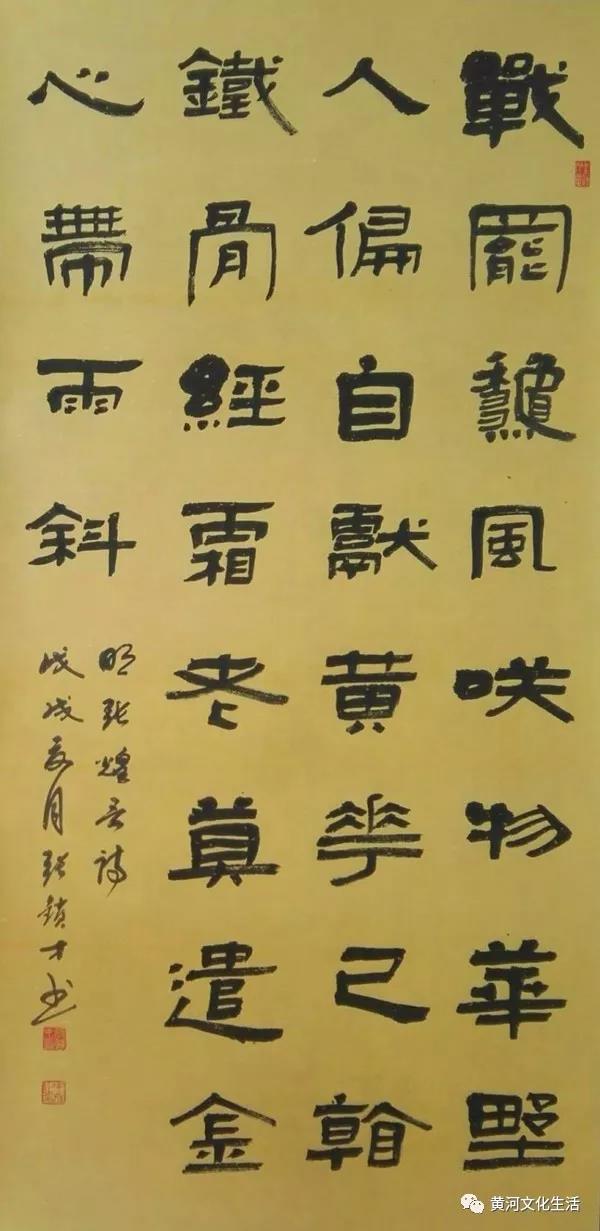 戰罷龝風咲物華野
人偏自獻黄花已看
鐵骨經霜老莫遣金
心帶雨斜
明張煌言詩
戊戌夏月張鎖才书
黄河文化生活